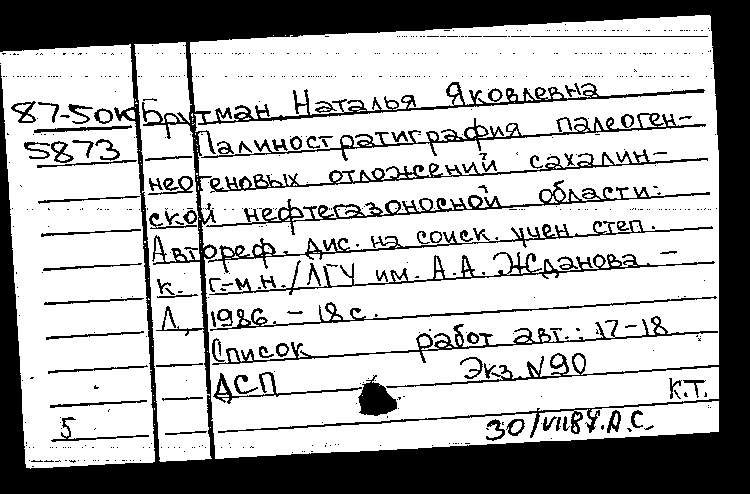 87-5ок Брутман, Наталья Яковлевна
5873 Палиностратиграфия палеоген-
неогеновых отложений сахалин-
ской нефтегазоносной области:
Автореф. дис. на соиск. учен. степ.
к. г.-м.н. /ЛГУ им. А.А. Жданова. –
Л., 1986. – 18 с.
Список работ авт.: 17–18
ДСП Экз. N 90
к.т.
5 30/VII87. А.С.